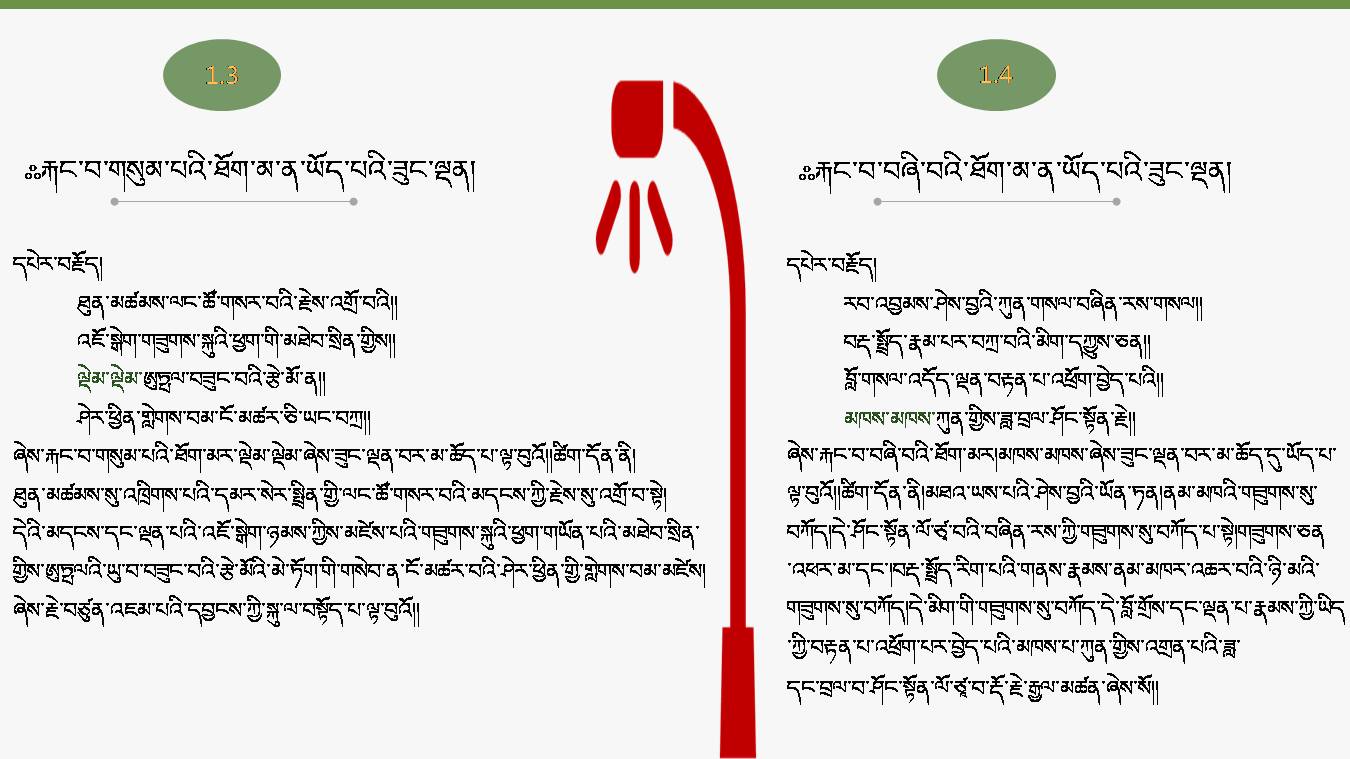 1.3
ༀརྐང་བ་གསུམ་པའི་ཐོག་མ་ན་ཡོད་པའི་ཟུང་ལྡན།
དཔེར་བརྗོད།
ཐུན་མཚམས་ལང་ཚོ་གསར་བའི་རྗེས་འགྲོ་བའི།།
འཇོ་སྒེག་གཟུགས་སྐུའི་ཕྱག་གི་མཐེབ་སྲིན་གྱིས།།
ལྡེམ་ལྡེམ་ཨུཏྤལ་བཟུང་བའི་རྩེ་མོ་ན།།
ཤེར་ཕྱིན་གླེགས་བམ་ངོ་མཚར་ཅི་ཡང་བཀྲ།།
ཞེས་རྐང་བ་གསུམ་པའི་ཐོག་མར་ལྡེམ་ལྡེམ་ཞེས་ཟུང་ལྡན་བར་མ་ཆོད་པ་ལྟ་བུའོ།།ཚིག་དོན་ནི།
ཐུན་མཚམས་སུ་འཁྲིགས་པའི་དམར་སེར་སྤྲིན་གྱི་ལང་ཚོ་གསར་བའི་མདངས་ཀྱི་རྗེས་སུ་འགྲོ་བ་སྟེ།
དེའི་མདངས་དང་ལྡན་པའི་འཇོ་སྒེག་ཉམས་ཀྱིས་མཛེས་པའི་གཟུགས་སྐུའི་ཕྱག་གཡོན་པའི་མཐེབ་སྲིན་
གྱིས་ཨུཏྤལའི་ཡུ་བ་བཟུང་བའི་རྩེ་མོའི་མེ་ཏོག་གི་གསེབ་ན་ངོ་མཚར་བའི་ཤེར་ཕྱིན་གྱི་གླེགས་བམ་མཛེས།
ཞེས་རྗེ་བཙུན་འཇམ་པའི་དབྱངས་ཀྱི་སྐུ་ལ་བསྟོད་པ་ལྟ་བུའོ།།
1.4
ༀརྐང་བ་བཞི་བའི་ཐོག་མ་ན་ཡོད་པའི་ཟུང་ལྡན།
དཔེར་བརྗོད།
རབ་འབྱམས་ཤེས་བྱའི་ཀུན་གསལ་བཞིན་རས་གསལ།།
བརྡ་སྤྲོད་རྣམ་པར་བཀྲ་བའི་མིག་དཀྱུས་ཅན།།
བློ་གསལ་འདོད་ལྡན་བརྟན་པ་འཕྲོག་བྱེད་པའི།།
མཁས་མཁས་ཀུན་གྱིས་ཟླ་བྲལ་ཤོང་སྟོན་རྗེ།།
ཞེས་རྐང་བ་བཞི་བའི་ཐོག་མར།མཁས་མཁས་ཞེས་ཟུང་ལྡན་བར་མ་ཆོད་དུ་ཡོད་པ་
ལྟ་བུའོ།།ཚིག་དོན་ནི།མཐའ་ཡས་པའི་ཤེས་བྱའི་ཡོན་ཏན།ནམ་མཁའི་གཟུགས་སུ་
བཀོད།དེ་ཤོང་སྟོན་ལོ་ཙཱ་བའི་བཞིན་རས་ཀྱི་གཟུགས་སུ་བཀོད་པ་སྟེ།གཟུགས་ཅན
་འཕར་མ་དང་།བརྡ་སྤྲོད་རིག་པའི་གནས་རྣམས་ནམ་མཁར་འཆར་བའི་ཉི་མའི་
གཟུགས་སུ་བཀོད།དེ་མིག་གི་གཟུགས་སུ་བཀོད་དེ་བློ་གྲོས་དང་ལྡན་པ་རྣམས་ཀྱི་ཡིད
་ཀྱི་བརྟན་པ་འཕྲོག་པར་བྱེད་པའི་མཁས་པ་ཀུན་གྱིས་འགྲན་པའི་ཟླ་
དང་བྲལ་བ་ཤོང་སྟོན་ལོ་ཙཱ་བ་རྡོ་རྗེ་རྒྱལ་མཚན་ཞེས་སོ།།